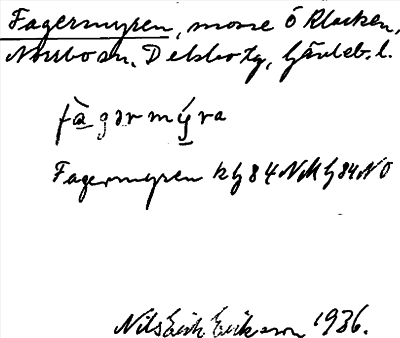 Fagermyren, mosse Ö Klacken,
Norrbo sn. Delsbo tg, Gävleb. l.
fàgərmýra
Fagermyren kg 84 NM g 84 NO
Nils Erik Erikson 1936.